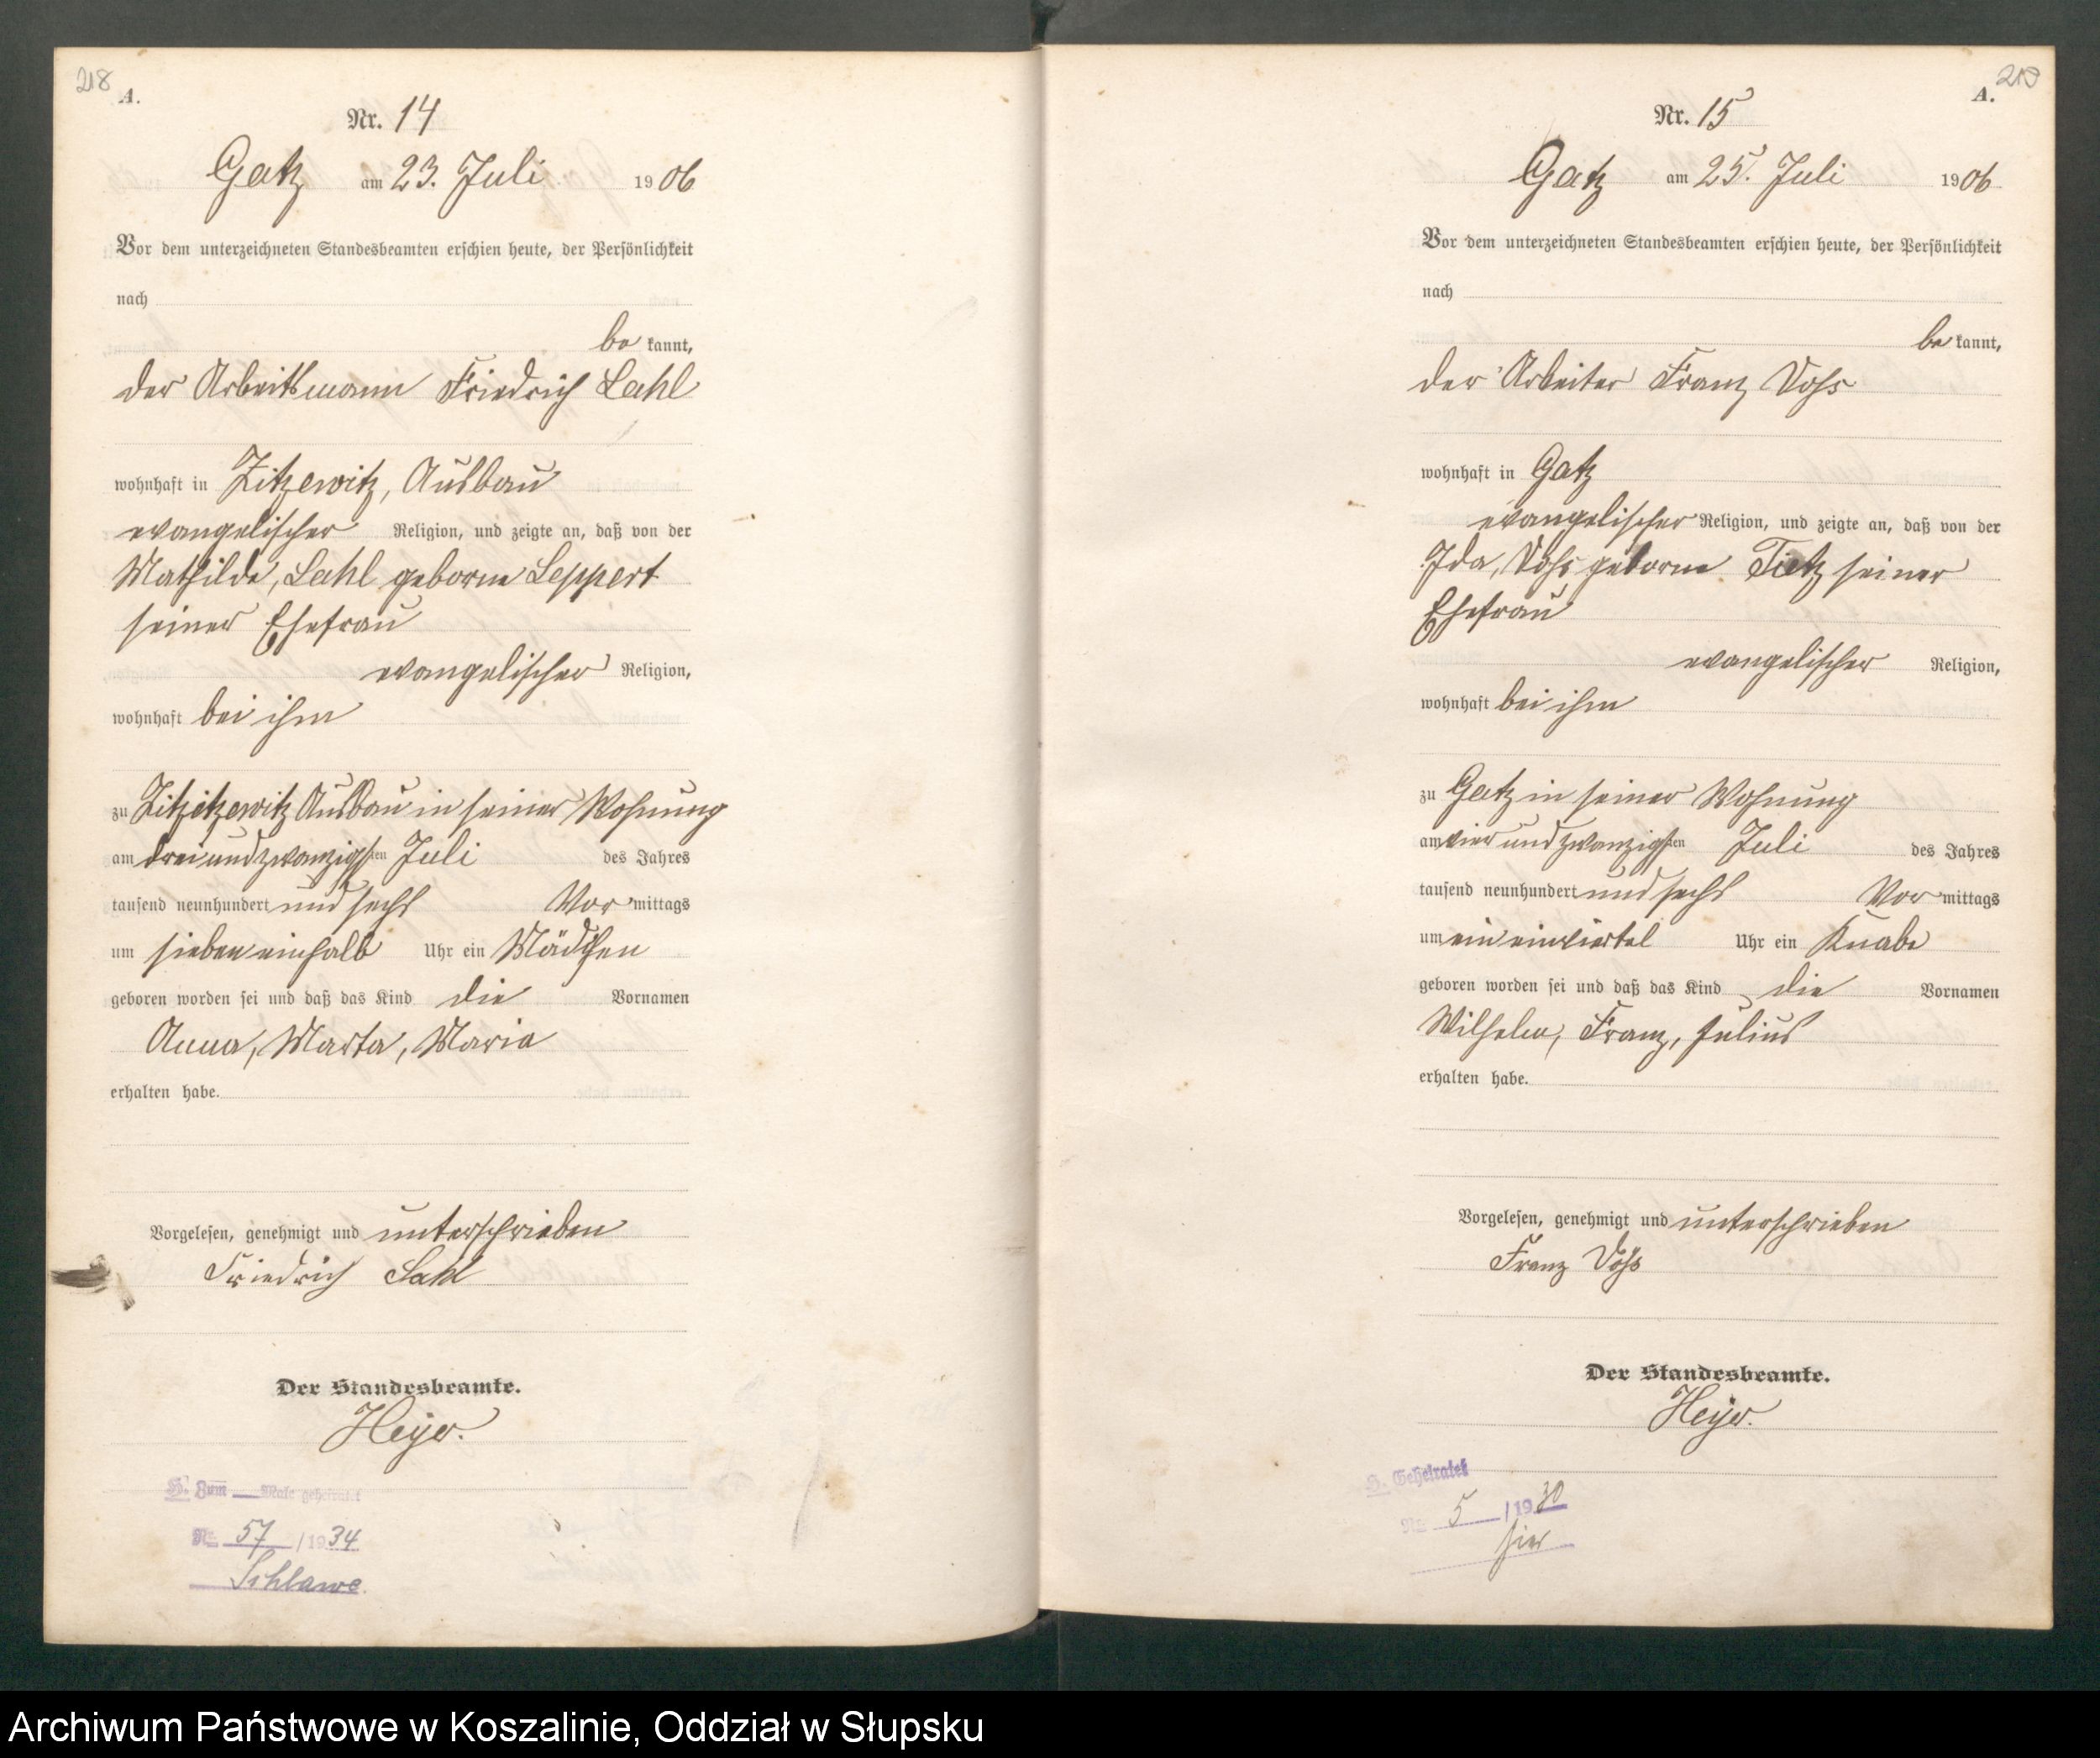 218
A.
Nr. 14
Gatz am 23. Juli 1906
Vor dem unterzeichneten Standesbeamten erschien heute, der Persönlichkeit
nach
be kannt,
der Arbeitsmann Friedrich Lahl
wohnhaft in Zitzewitz, Ausbau
evangelischer Religion, und zeigte an, daß von der
Mathilde, Lahl geborne Leppert
seiner Ehefrau
evangelischer Religion,
wohnhaft bei ihm
zu Zitzitzewitz Ausbau in seiner Wohnung
am drei und zwanzigsten Juli des Jahres
tausend neunhundert und sechs Vor mittags
um sieben einhalb Uhr ein Mädchen
geboren worden sei und daß das Kind die Vornamen
Anna, Marta, Maria
erhalten habe.
Vorgelesen, genehmigt und unterschrieben
Friedrich Lahl
Der Standesbeamte.
Heyer.
H. Zum Male geheiratet
Nr. 57 / 1934
Schlawe.
219
A.
Nr. 15
Gatz am 25. Juli 1906
Vor dem unterzeichneten Standesbeamten erschien heute, der Persönlichkeit
nach
be kannt,
der Arbeiter Franz Voß
wohnhaft in Gatz
evangelischer Religion, und zeigte an, daß von der
Ida, Voß geborne Tietz seiner
Ehefrau
evangelischer Religion,
wohnhaft bei ihm
zu Gatz in seiner Wohnung
am vier und zwanzigsten Juli des Jahres
tausend neunhundert und sechs Vor mittags
um ein einviertel Uhr ein Knabe
geboren worden sei und daß das Kind die Vornamen
Wilhelm, Franz, Julius
erhalten habe.
Vorgelesen, genehmigt und unterschrieben
Franz Voß
Der Standesbeamte.
Heyer.
H. Geheiratet
Nr. 5 / 1930
hier
Archiwum Państwowe w Koszalinie, Oddział w Słupsku